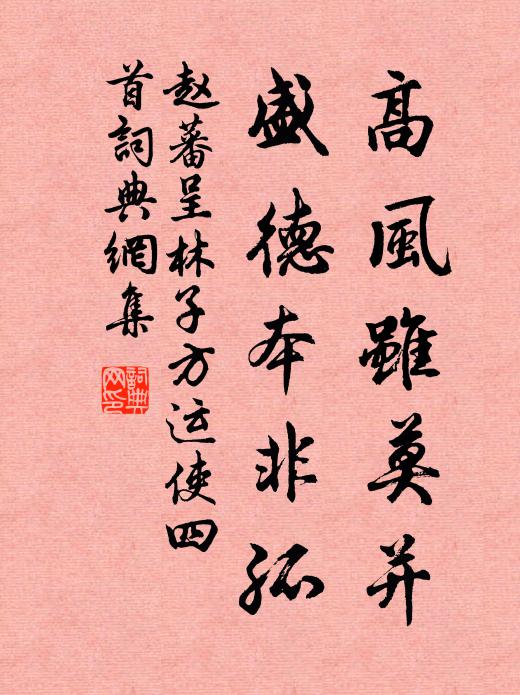 高風雖莫并
盛德本非孤
赵蕃呈林子方运使四
首詞典網集
詞典网印